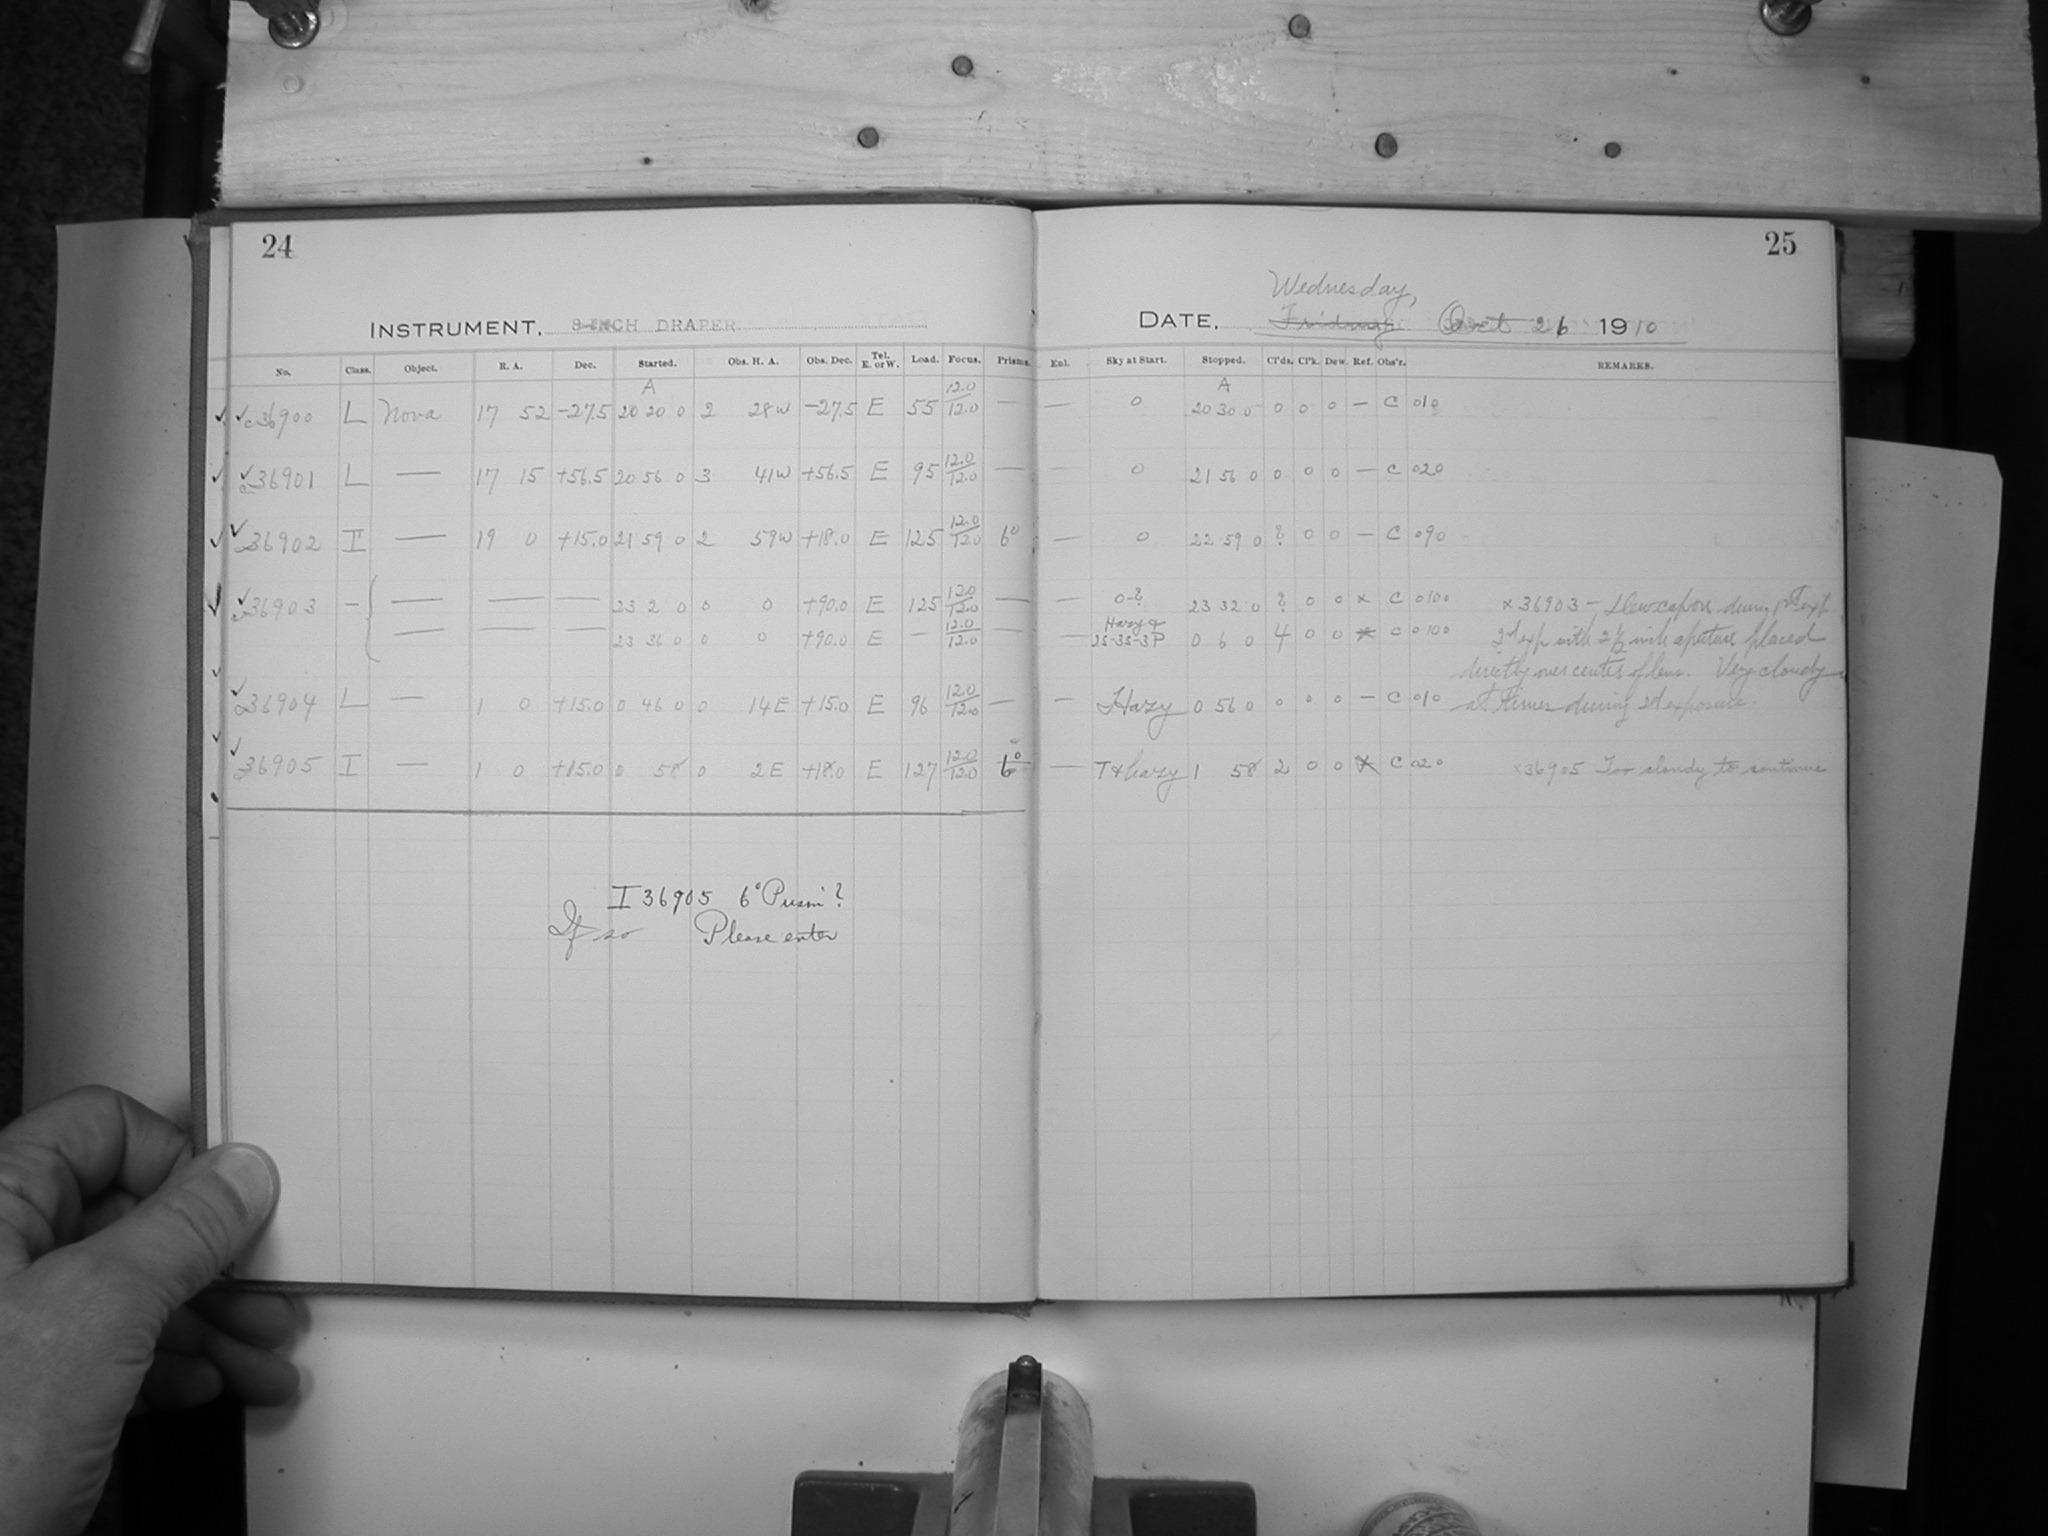 24
25
INSTRUMENT, 8-INCH DRAPER
Wednesday,
DATE, Friday Oct 26 1910
No. Class. Object. R. A. Dec. Started. Obs. H. A. Obs. Dec. Tel. E. or W. Load. Focus. Prisms. Enl. Sky at Start. Stopped. Cl'ds. Cl'k. Dew. Ref. Obs'r. REMARKS.
A 12.0 A
36900 L Nova 17 52 -27.5 20 20 0 2 28W -27.5 E 55 12.0 — — 0 20 30 0 0 0 0 — C 010
36901 L — 17 15 +56.5 20 56 0 3 41W +56.5 E 95 12.0/12.0 — — 0 21 56 0 0 0 0 — C 020
36902 I — 19 0 +15.0 21 59 0 2 59W +18.0 E 125 12.0/12.0 6° — 0 22 59 0 ? 0 0 — C 090
36903 — — — — 23 2 0 0 0 +90.0 E 125 12.0/12.0 — 0-? 23 32 0 ? 0 0 x C 0100 x 36903 - Dewcap on during 1st exp
— — — 23 36 0 0 0 +90.0 E — 12.0/12.0 — — Hazy & 25-35-3P 0 6 0 4 0 0 x C 0100 2d exp with 2½ inch aperture placed
directly over center of lens. Very cloudy
36904 L — 1 0 +15.0 0 46 0 0 14E +15.0 E 96 12.0/12.0 — — Hazy 0 56 0 0 0 0 — C 010 at times during 2d exposure.
36905 I — 1 0 +15.0 0 58 0 2E +18.0 E 127 12.0/12.0 6° — T & hazy 1 58 2 0 0 x C 020 x 36905 Too cloudy to continue
I 36905 6° Prism?
If so Please enter